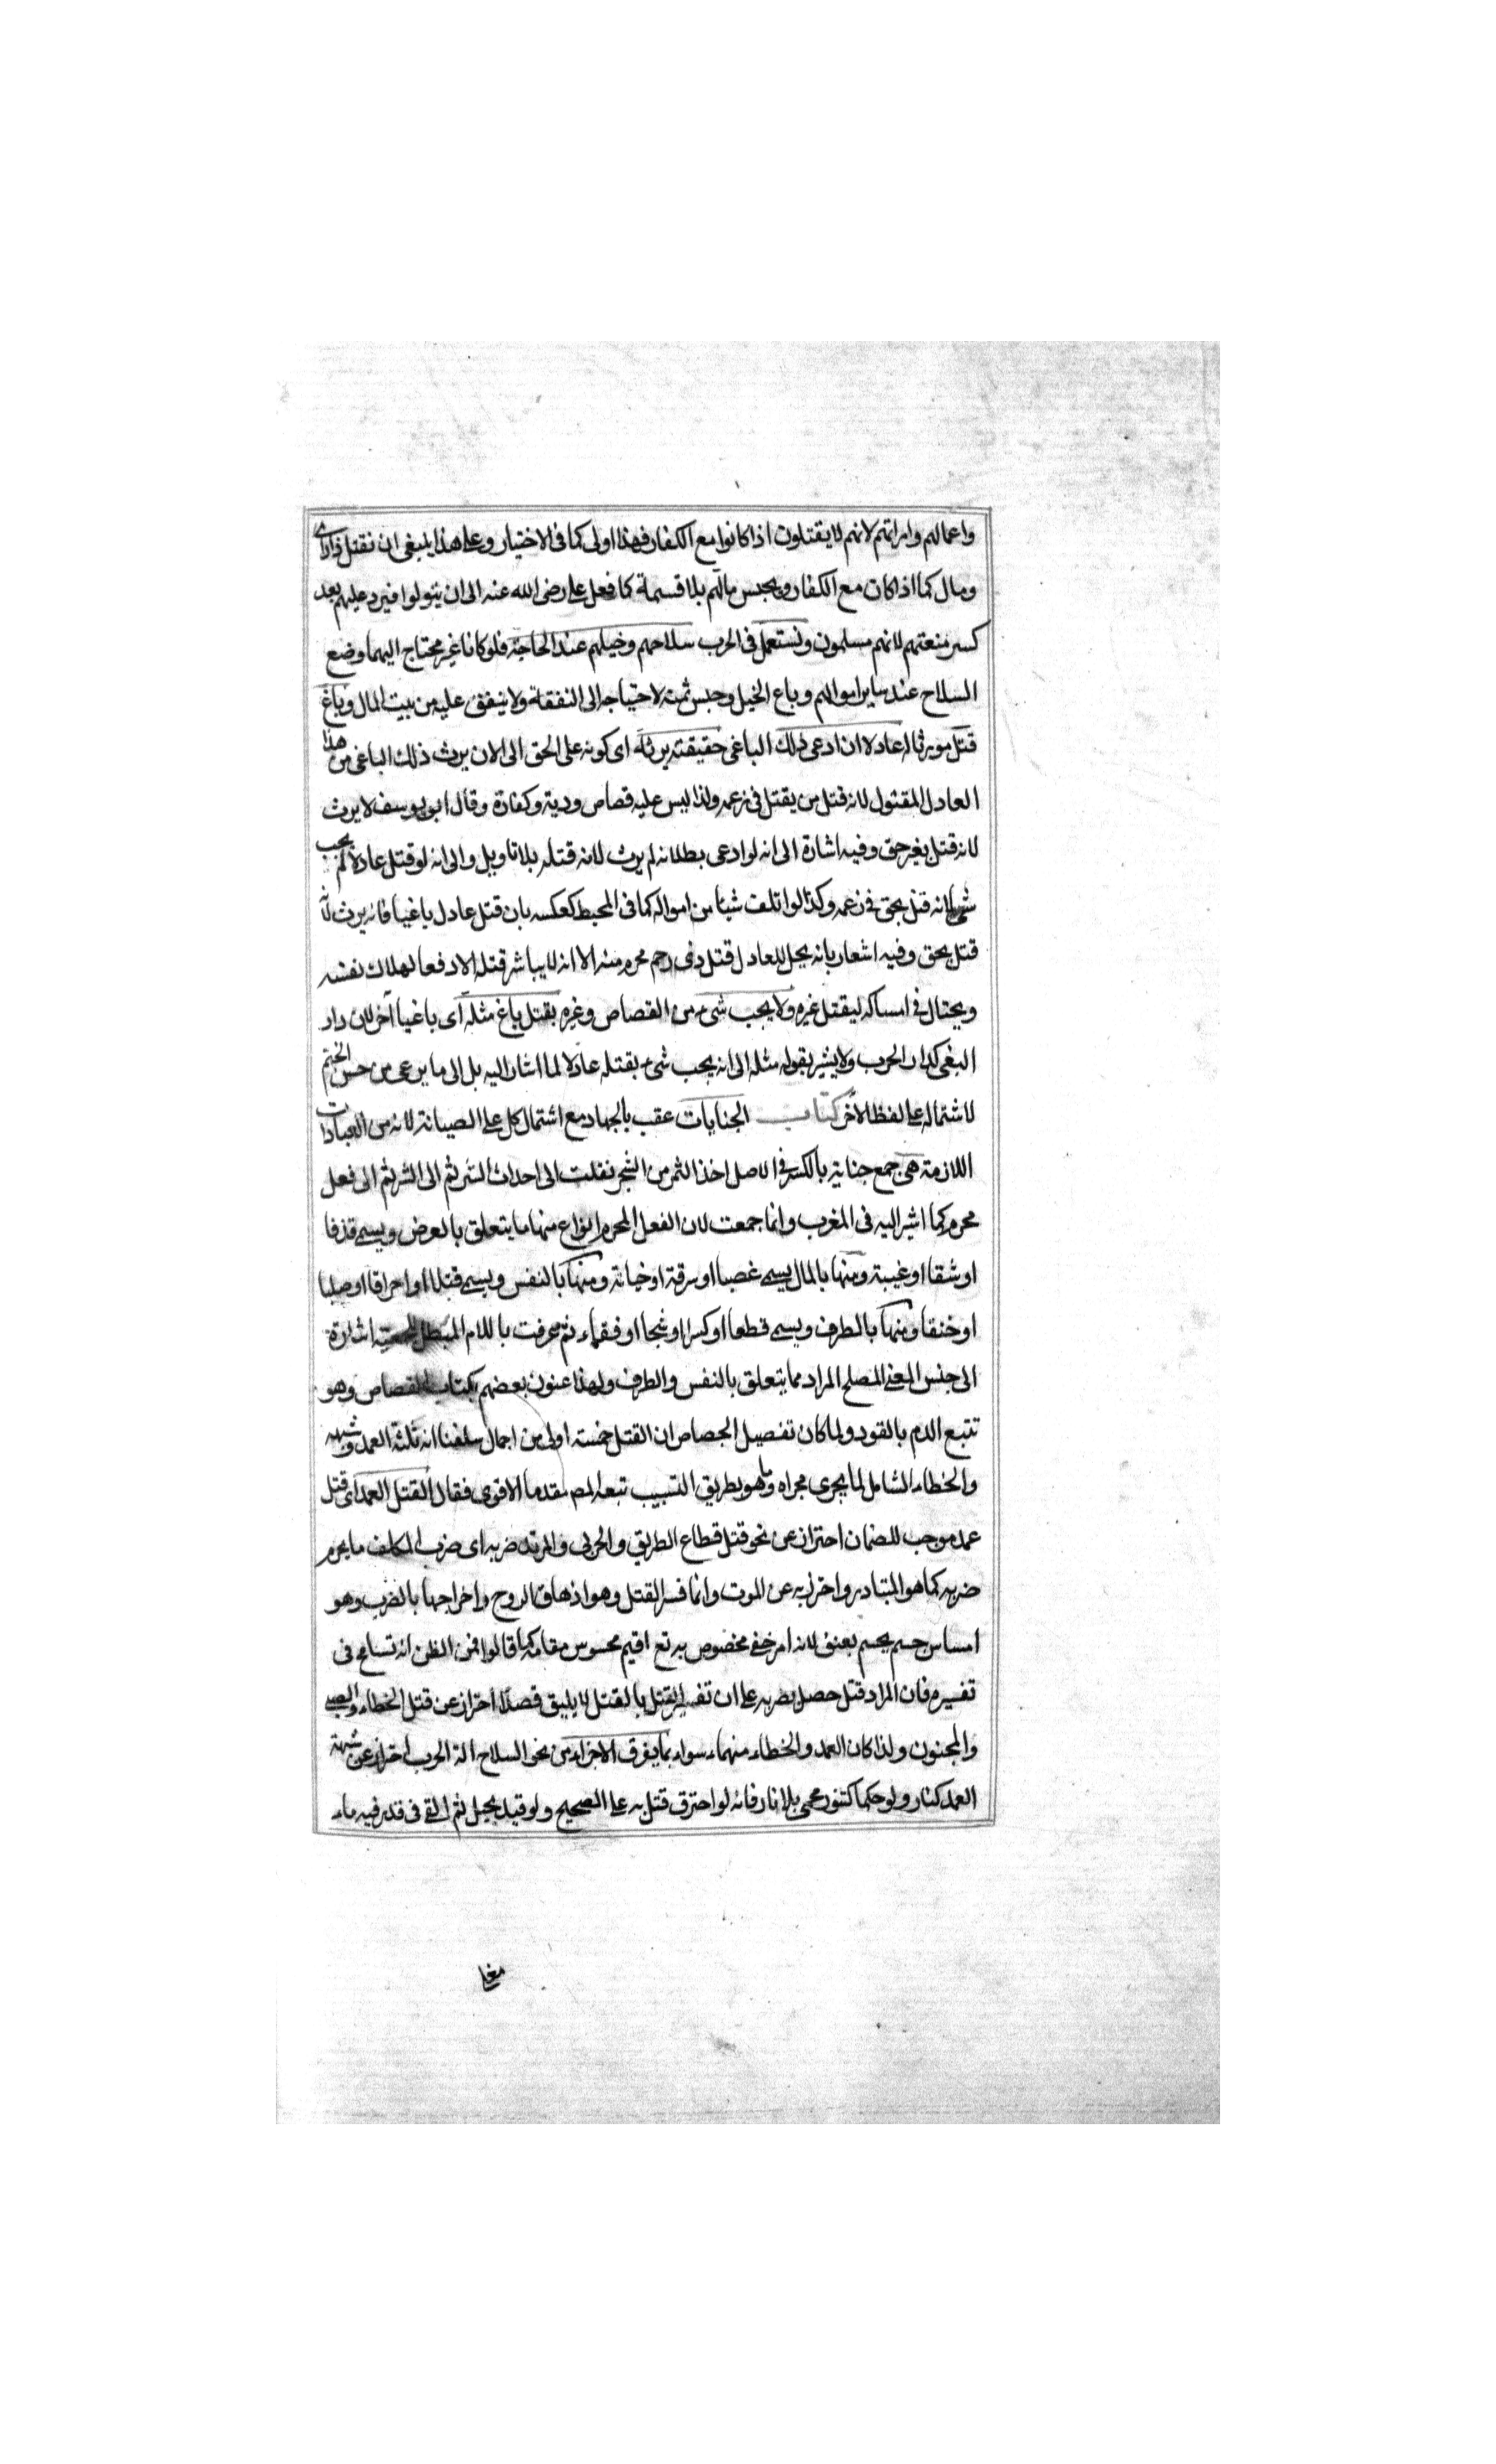 واعمالهم وامراتهم لانهم لا يقتلون اذا كانوا مع الكفار فهذا اولى كما فى الاختيار وعلى هذا ينبغى ان نقتل ذا راى
ومال كما اذا كان مع الكفار ويحبس مالهم بلا قسمة كما فعل على رضى الله عنه الى ان يتوبوا فيرد عليهم بعد
كسر منعتهم لانهم مسلمون ونستعمل فى الحرب سلاحهم وخيلهم عند الحاجة فلو كانا غير محتاج اليهما وضع
السلاح عند ساير اموالهم وباع الخيل وحبس ثمنه لاحتياجه الى النفقة ولا ينفق عليه من بيت المال وباغ
قتل مورثاله عادلا ان ادعى ذلك الباغى حقيقته يرثه اى كونه على الحق الى الان يرث ذلك الباغى من هذا
العادل المقتول لانه قتل من يقتل فى زعمه ولذا ليس عليه قصاص ودية وكفارة وقال ابو يوسف لا يرث
لانه قتل بغير حق وفيه اشارة الى انه لو ادعى بطلانه لم يرث لانه قتله بلا تاويل والى انه لو قتل عادلا لم يجب
شى لانه قتل بحق فى زعمه وكذا لو اتلف شيئا من امواله كما فى المحيط كعكسه بان قتل عادل باغيا فانه يرث لانه
قتل بحق وفيه اشعار بانه يحل للعادل قتل ذى رحم محرم منه الا انه لا يباشر قتله الا دفعا لهلاك نفسه
ويحتال فى امساكه ليقتل غيره ولا يجب شىء من القصاص وغيره بقتل باغ مثله اى باغيا آخر لان دار
البغى كدار الحرب ولا يشير بقوله مثله الى انه يجب شىء بقتله عادلا لما اشار اليه بل الى ما يرعى من حسن الختم
لاشتماله على لفظ الاخر كتاب الجنايات عقب بالجهاد مع اشتمال كل على الصيانة لانه من العبادات
اللازمة هى جمع جناية بالكسر فى الاصل اخذ الثمر من الشجر نقلت الى احداث الشر ثم الى الشر ثم الى فعل
محرم كما اشير اليه فى المغرب وانما جمعت لان الفعل المحرم انواع منها ما يتعلق بالعرض ويسمى قذفا
او شتما او غيبة ومنها بالمال يسمى غصبا او سرقة او خيانة ومنها بالنفس ويسمى قتلا او احراقا او صلبا
او خنقا ومنها بالطرف ويسمى قطعا او كسرا او شجا او فقاء ثم عرفت باللام المبطل للجمعية اشارة
الى جنس المعنى المصطلح المراد مما يتعلق بالنفس والطرف ولهذا عنون بعضهم بكتاب القصاص وهو
تتبع الدم بالقود ولما كان تفصيل الجصاص ان القتل خمسة اولى من اجمال سلفنا انه ثلثة العمد وشبهه
والخطاء الشامل لما يجرى مجراه وما هو بطريق التسبيب تبعه المص مقدما الاقوى فقال القتل العمد اى قتل
عمد موجب للضمان احتراز عن نحو قتل قطاع الطريق والحربى والمرتد ضربه اى ضرب المكلف ما يحرم
ضربه كما هو المتبادر واحترز به عن الموت وانما فسر القتل وهو اذهاق الروح واخراجها بالضرب وهو
امساس جسم بجسم بعنف لانه امر خفى مخصوص به تع اقيم محسوس مقامه كما قالوا فمن الظن انه تسامح فى
تفسيره فان المراد قتل حصل بضربه على ان تفسير القتل بالقتل لا يليق قصدا احتراز عن قتل الخطاء والصبى
والمجنون ولذا كان العمد والخطاء منهما سواء بما يفرق الاجزاء من نحو السلاح الة الحرب احتراز عن شبهة
العمد كنار ولو حكما كتنور محمى بلا نار فانه لو احترق قتل به على الصحيح ولو قيد بحبل ثم القى فى قدر فيه ماء
مغلى